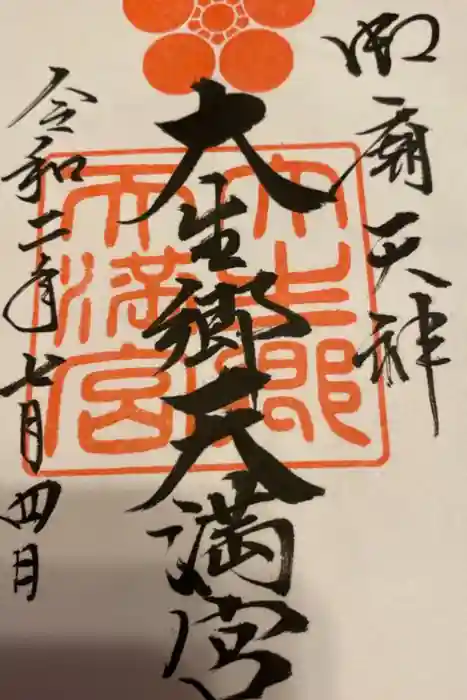 御廟天神
大生郷天満宮
大生郷
天満宮
令和二年七月四日